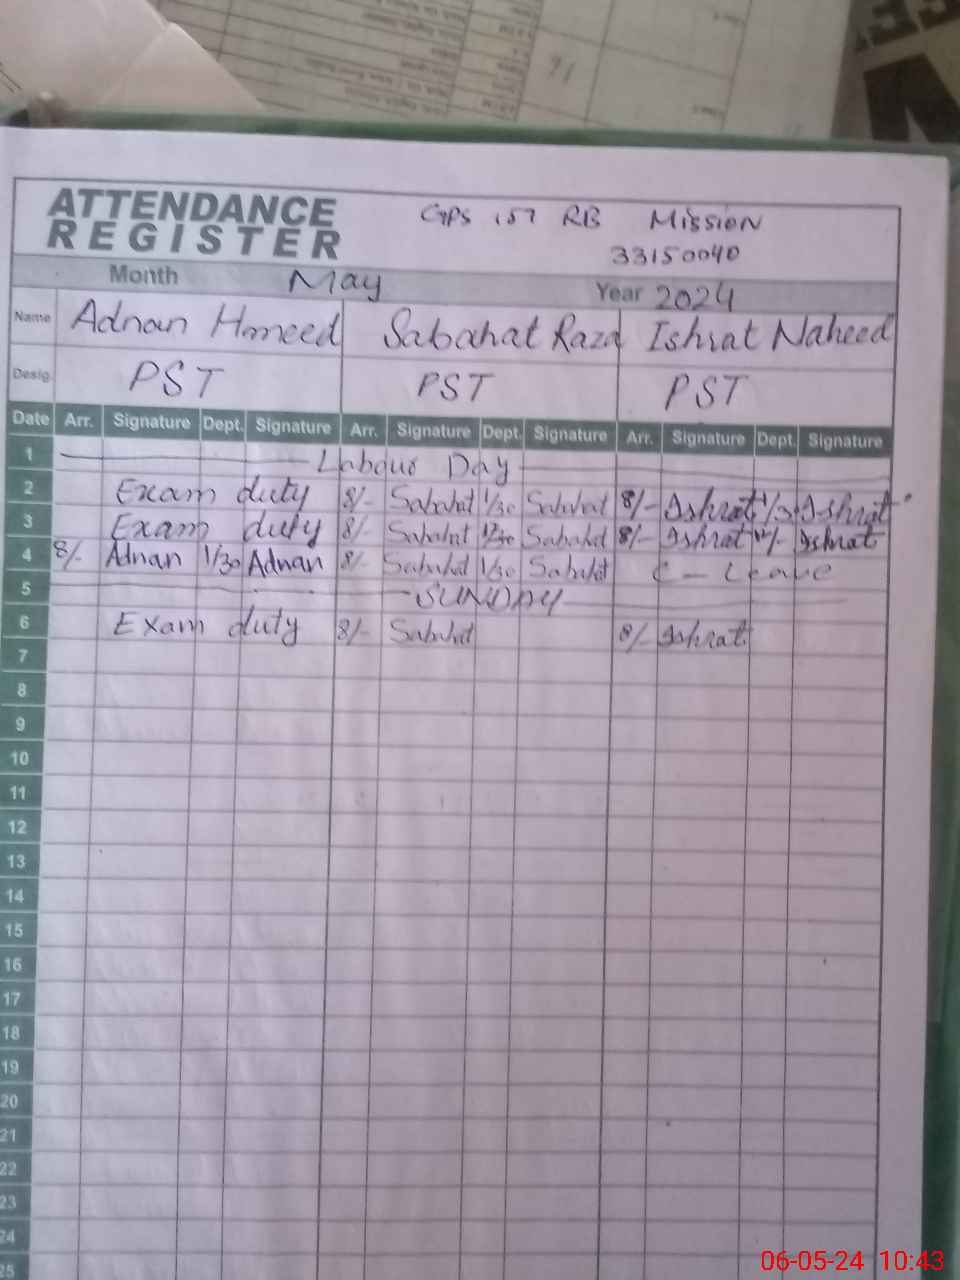 ATTENDANCE REGISTER GPS 157 RB Mission
33150040
Month May Year 2024
Name Adnan Hameed Sabahat Raza Ishrat Naheed
Desig. PST PST PST
Date Arr. Signature Dept. Signature Arr. Signature Dept. Signature Arr. Signature Dept. Signature
1 Labour Day
2 Exam duty 8/- Sabahat 1/30 Sabahat 8/- Ishrat 1/30 Ishrat
3 Exam duty 8/- Sabahat 12/30 Sabahat 8/- Ishrat 12/- Ishrat
4 8/- Adnan 1/30 Adnan 8/- Sabahat 1/30 Sabahat C - Leave
5 SUNDAY
6 Exam duty 8/- Sabahat 8/- Ishrat
7
8
9
10
11
12
13
14
15
16
17
18
19
20
21
22
23
24
25
06-05-24 10:43